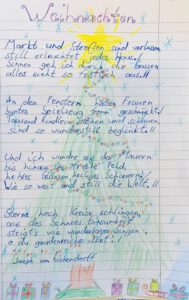 Weihnachten
Markt und Straßen sind verlassen
still erleuchtet jedes Haus!
Sinnend geh ich durch die Gassen
alles sieht so festlich aus!!
An den Fenstern haben Frauen
buntes Spielzeug fromm geschmückt!
Tausend Kindlein stehn und schauen,
sind so wunderstill beglückt!!
Und ich wandre aus den Mauern
bis hinaus ins freie Feld.
hehres Glänzen heiliges Schauern!
Wie so weit und still die Welt!!
Sterne hoch Kreise schlingen,
aus des Schnees Einsamkeit
steigt's wie wunderbares Singen:
o du gnadenreiche Zeit!
Joseph von Eichendorff